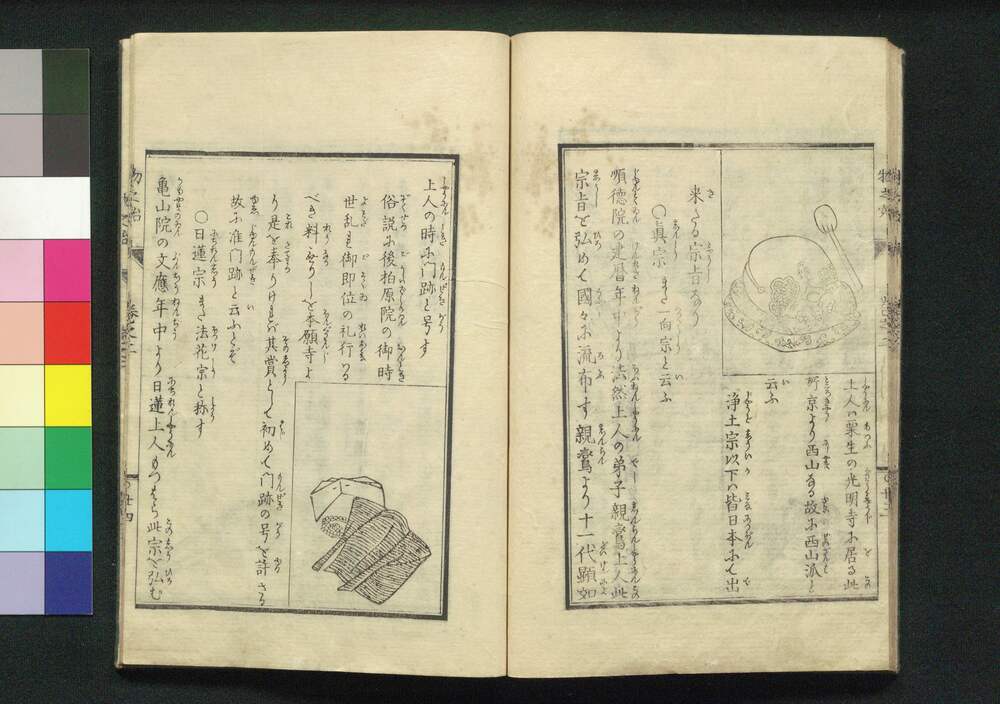 上人ハ粟生の光明寺に居る此
所京より西山なる故に西山派と
云ふ
浄土宗以下ハ皆日本にて出
来たる宗旨なり
〇真宗 また一向宗と云ふ
順徳院の建暦年中より法然上人の弟子親鸞上人此
宗旨を弘めて國々に流布す親鸞より十一代顕如
上人の時に門跡と号す
俗説に後柏原院の御時
世乱れ御即位の礼行ハる
べき料なかりしを本願寺よ
り是を奉りけれバ其賞として初めて門跡の号を許さる
故に准門跡と云ふとぞ
〇日蓮宗 また法花宗と称す
亀山院の文應年中より日蓮上人もつはら此宗を弘む